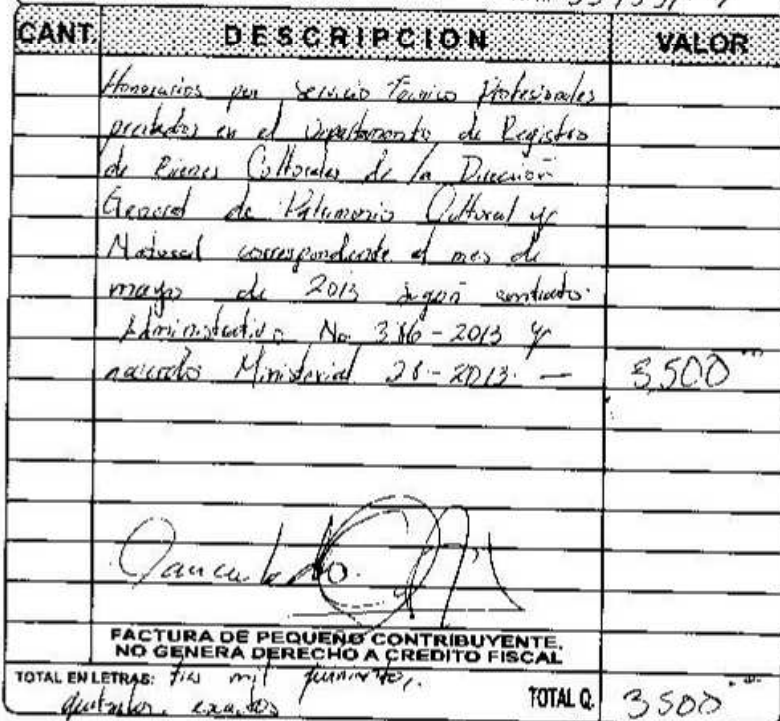 CANT. DESCRIPCION VALOR
Honorarios por Servicio Técnico Profesionales
prestados en el Departamento de Registro
de Bienes Culturales de la Dirección
General de Patrimonio Cultural y
Natural correspondiente al mes de
mayo de 2013 según contrato
Administrativo No 386-2013 y
acuerdo Ministerial 28-2013. — 3500
Cancelado.
FACTURA DE PEQUEÑO CONTRIBUYENTE.
NO GENERA DERECHO A CREDITO FISCAL
TOTAL EN LETRAS: tres mil quinientos
quetzales exactos TOTAL Q. 3500